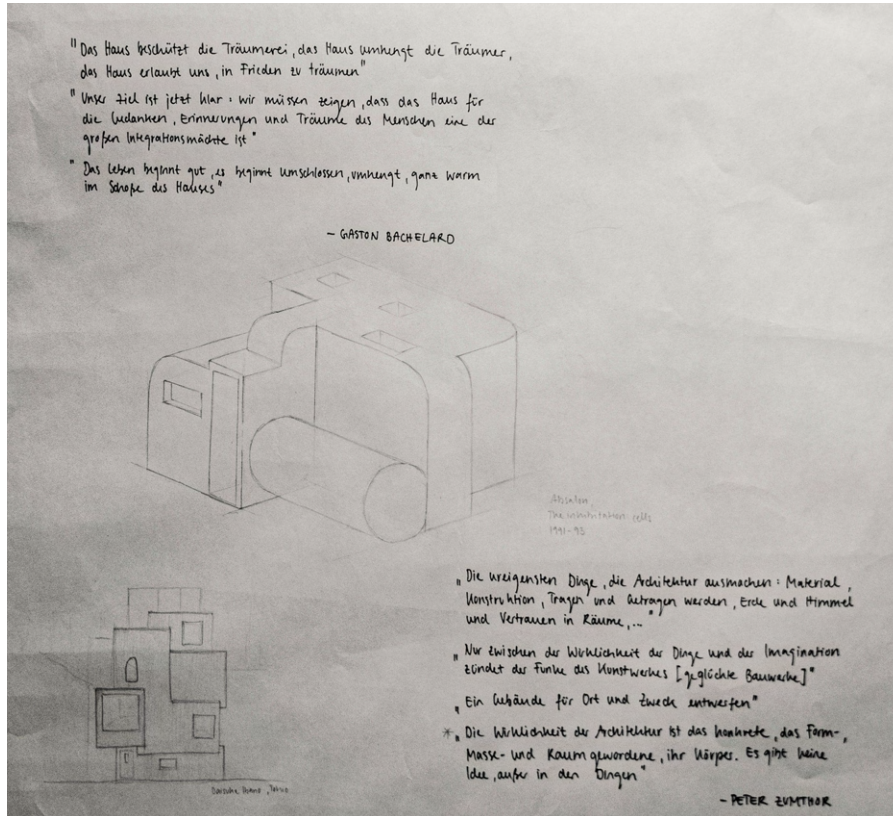 "Das Haus beschützt die Träumerei, das Haus umhengt die Träumer,
das Haus erlaubt uns, in Frieden zu träumen"
"Unser Ziel ist jetzt klar: wir müssen zeigen, dass das Haus für
die Gedanken, Erinnerungen und Träume des Menschen eine der
großen Integrationsmächte ist"
"Das Leben beginnt gut, es beginnt umschlossen, umhengt, ganz warm
im Schoße des Hauses"
- GASTON BACHELARD
Absalon,
The inhabitation cells
1991-93
"Die ureigensten Dinge, die Architektur ausmachen: Material,
Konstruktion, Tragen und Getragen werden, Erde und Himmel
und Vertrauen in Räume,..."
"Nur zwischen der Wirklichkeit der Dinge und der Imagination
zündet der Funke des Kunstwerkes [geglückte Bauwerke]"
"Ein Gebäude für Ort und Zweck entwerfen"
*"Die Wirklichkeit der Architektur ist das konkrete, das Form-,
Masse- und Raumgewordene, ihr Körper. Es gibt keine
Idee, außer in den Dingen"
- PETER ZUMTHOR